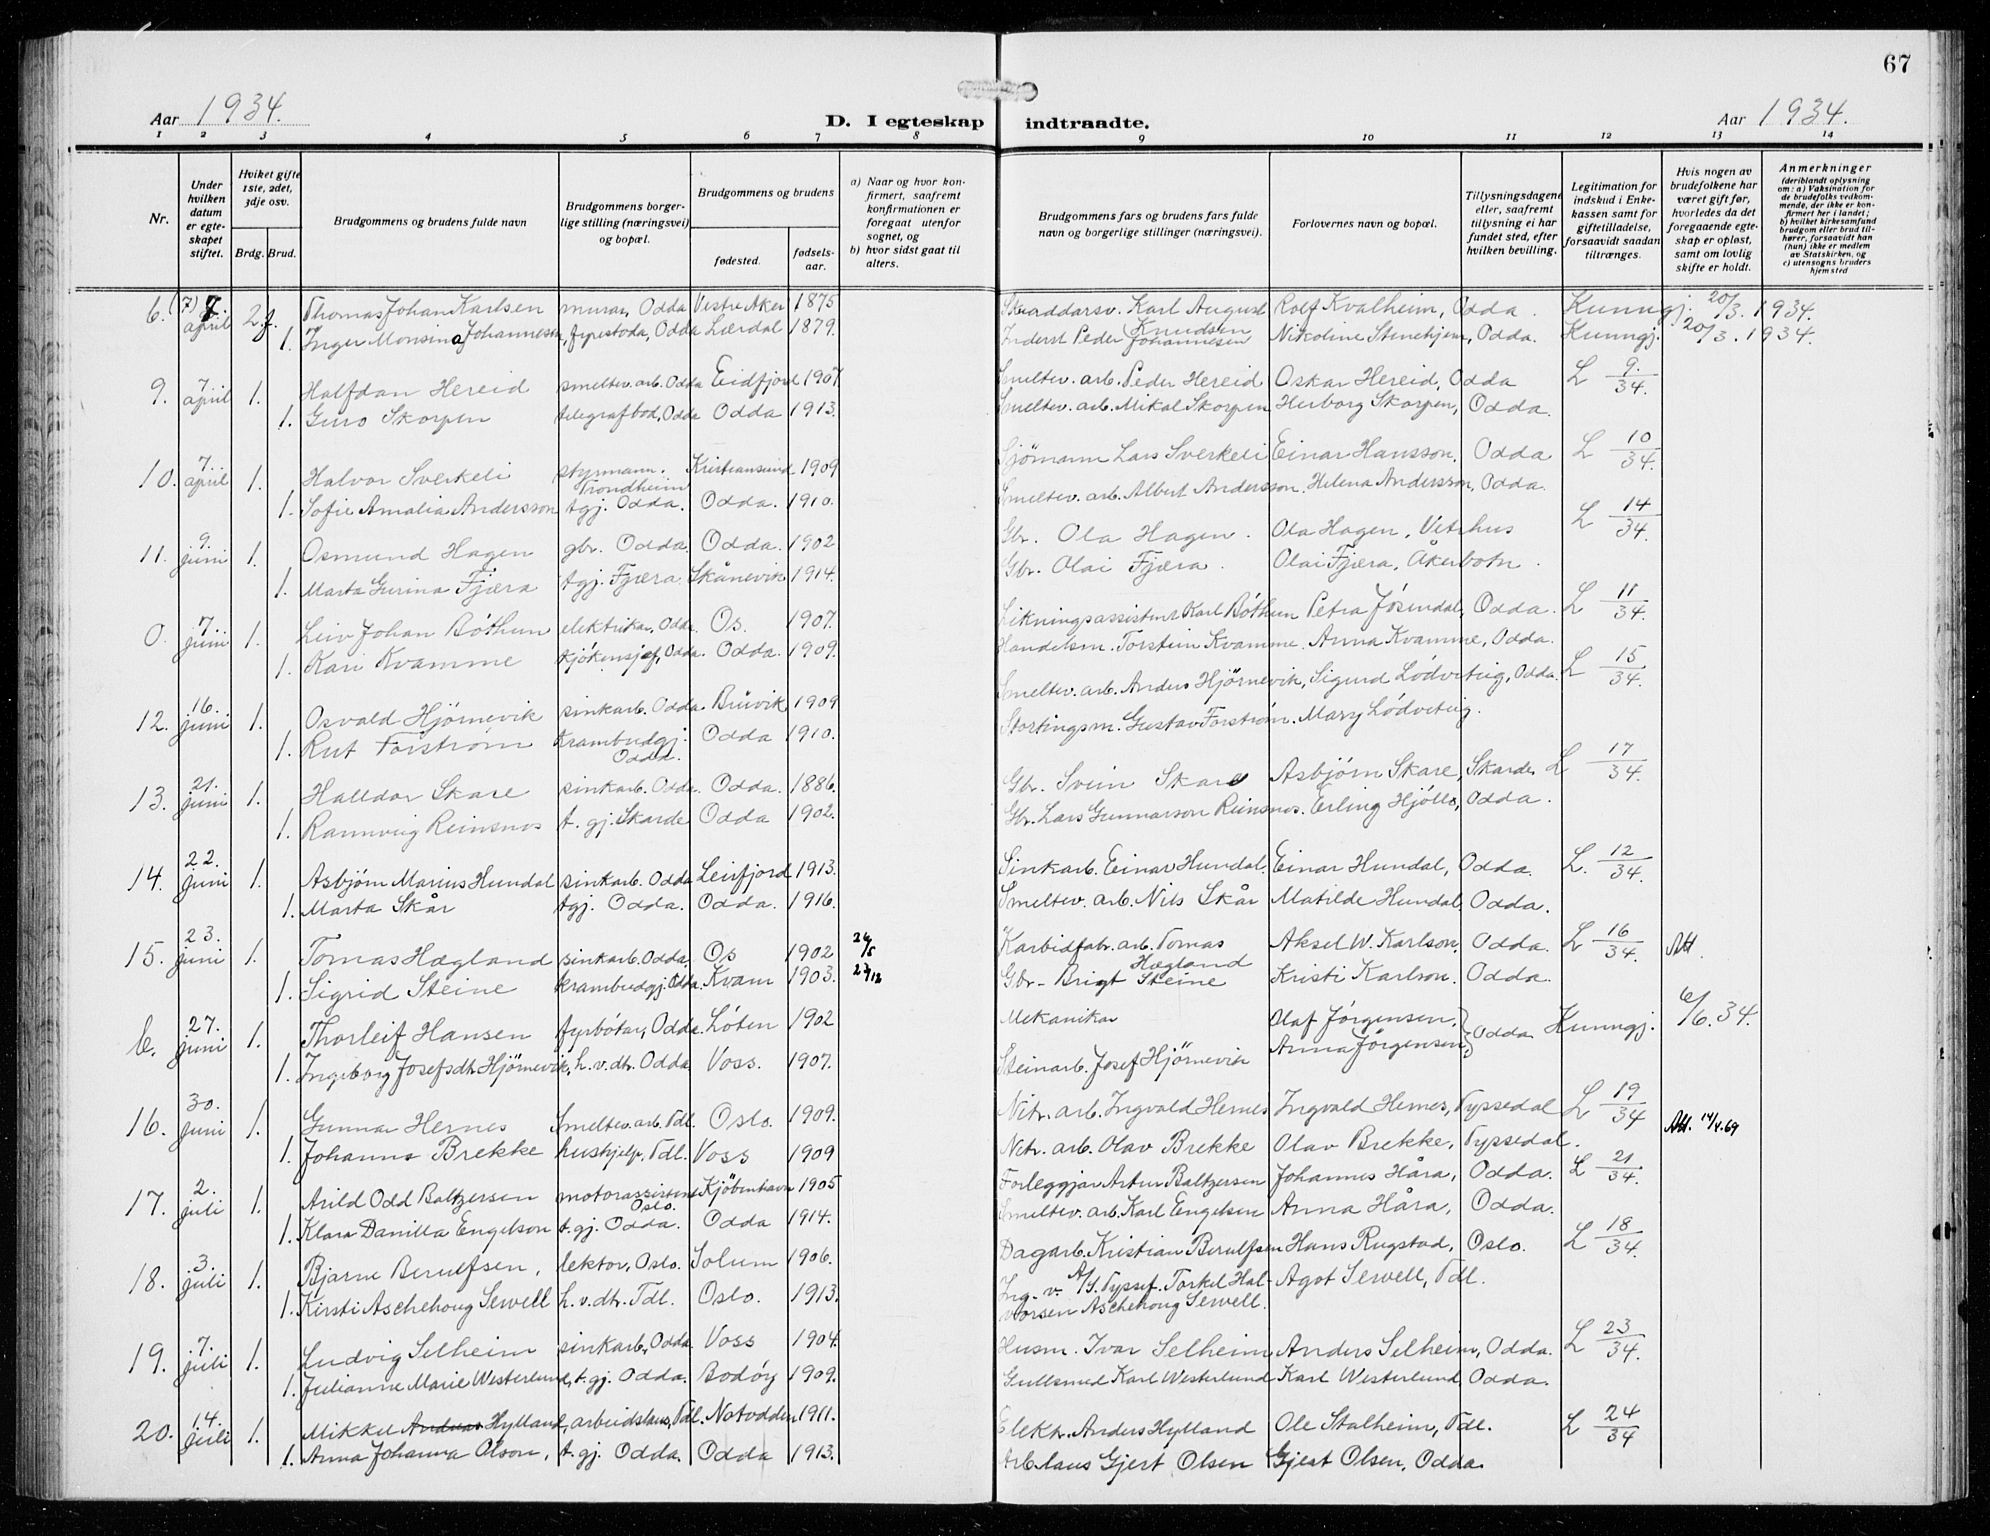 67
Aar 1934.
D. I egteskap indtraadte.
Aar 1934.
1 2 3 4 5 6 7 8 9 10 11 12 13 14
Nr.
Under hvilken datum er egteskapet stiftet.
Hviket gifte 1ste, 2det, 3dje osv.
Brdg. Brud.
Brudgommens og brudens fulde navn
Brudgommens borgerlige stilling (næringsvei) og bopæl.
Brudgommens og brudens
fødested.
fødselsaar.
a) Naar og hvor konfirmert, saafremt konfirmationen er foregaat utenfor sognet, og
b) hvor sidst gaat til alters.
Brudgommens fars og brudens fars fulde navn og borgerlige stillinger (næringsvei).
Forlovernes navn og bopæl.
Tillysningsdagene eller, saafremt tillysning ei har fundet sted, efter hvilken bevilling.
Legitimation for indskud i Enkekassen samt for giftetilladelse, forsaavidt saadan tiltrænges.
Hvis nogen av brudefolkene har været gift før, hvorledes da det foregaaende egteskap er opløst, samt om lovlig skifte er holdt.
Anmerkninger (deriblandt oplysning om: a) Vaksination for de brudefolks vedkommende, der ikke er konfirmert her i landet; b) hvilket kirkesamfund brudgom eller brud tilhører, forsaavidt han (hun) ikke er medlem av Statskirken, og c) utensogns bruders hjemsted
6. (7) 7. april 2. Thomas Johan Karlsen murar, Odda Vestre Aker 1875 Skraddarsv. Karl August Knudsen Rolf Kvalheim, Odda. Kunngj. 20/3. 1934.
1. Inger Monsina Johannesen, fyrestoda, Odda Lærdal 1879. Inderst Peder Johannesen Nikoline Stenehjem, Odda. Kunngj. 20/3. 1934.
9. 7. april 1. Halfdan Hereid smeltev. arb. Odda Eidfjord 1907 Smeltev. arb. Peder Hereid Oskar Hereid, Odda L 9/34.
1. Guro Skorpen telegrafbod, Odda Odda 1913. Smeltev. arb. Mikal Skorpen Herborg Skorpen, Odda.
10. 7. april 1. Halvor Sverkeli styrmann. Trondheim Kristiansund 1909 Sjømann Lars Sverkeli Einar Hansson, Odda L 10/34.
1. Sofie Amalia Andersson tgj. Odda. Odda. 1910. Smeltev. arb. Albert Andersson. Helena Andersson, Odda.
11. 9. juni 1. Osmund Hagen gbr. Odda. Odda. 1902 Gbr. Ola Hagen. Ola Hagen, Vetrhus L 14/34.
1. Marta Gurina Fjæra tgj. Fjæra. Skånevik 1914. Gbr. Olai Fjæra. Olai Fjæra, Åkerbotn.
0. 7. juni 1. Leiv Johan Bóthun elektrikar, Odda. Os. 1907. Likningsassistent Karl Bóthun Petra Jósendal, Odda. L 11/34.
1. Kari Kvamme kjókensjef, Odda. Odda. 1909. Handelsm. Torstein Kvamme. Anna Kvamme, Odda.
12. 16. juni 1. Osvald Hjørnevik sinkarb. Odda. Bruvik 1909 Smeltev. arb. Anders Hjørnevik, Sigurd Lódviteig, Odda. L 15/34.
1. Rut Forstrøm krambudgj. Odda. Odda 1910. Stortingsm. Gustav Forstrøm. Mary Lódviteig.
13. 21. juni 1. Halldor Skare sinkarb. Odda. Odda. 1886. Gbr. Svein Skare Asbjørn Skare, Skarde L 17/34.
1. Rannveig Reinsnos t. gj. Skarde Odda 1902. Gbr. Lars Gunnarson Reinsnos. Erling Hjóllo, Odda.
14. 22. juni 1. Asbjørn Marius Hundal sinkarb. Odda Leirfjord 1913. Sinkarb. Einar Hundal. Einar Hundal, Odda. L. 12/34.
1. Marta Skår tgj. Odda. Odda. 1916. Smeltev. arb. Nils Skår Matilde Hundal. Odda.
15. 23. juni 1. Tomas Hægland sinkarb. Odda Os 1902 26/5 Karbidfabr. arb. Tomas Hægland Aksel W. Karlson. Odda. L 16/34. Att.
1. Sigrid Steine krambudgj. Odda. Kvam 1903. 27/12 Gbr. Brigt Steine Kristi Karlson. Odda.
6. 27. juni 1. Thorleif Hansen fyrbótar, Odda Lóten 1902 Mekanikar Olaf Jórgensen, Odda Kunngj. 6/6. 34.
1. Ingeborg Josefsdtr Hjørnevik, h.v.dtr. Odda Voss. 1907. Steinarb. Josef Hjørnevik Anna Jørgensen,
16. 30. juni 1. Gunnar Hernes Smeltev. arb. Tdl. Oslo. 1909. Nitr. arb. Ingvald Hernes Ingvald Hernes, Tyssedal L 19/34 Att. 14/4.69
1. Johanna Brekke hushjelp, Tdl. Voss 1909 Nitr. arb. Olav Brekke Olav Brekke, Tyssedal.
17. 2. juli 1. Arild Odd Baltzersen motorassistent Oslo. Kjøbenhavn 1905 Forleggjar Artur Baltzersen Johannes Håra, Odda. L 21/34.
1. Klara Danilla Engelson t. gj. Odda. Odda 1914. Smeltev. arb. Karl Engelsen Anna Håra, Odda.
18. 3. juli 1. Bjarne Berulfsen, lektor, Oslo. Solum 1906. Dagarb. Kristian Berulfsen Hans Rugstad, Oslo. L 18/34.
1. Kirsti Aschehoug Sewell h.v.dtr. Tdl. Oslo. 1913. Ing. v. A/S. Tyssef. Torkel Halvorsen Aschehoug Sewell. Agot Sewell, Tdl.
19. 7. juli 1. Ludvig Selheim sinkarb, Odda Voss 1904. Husm. Ivar Selheim Anders Selheim, Odda. L 23/34.
1. Julianne Marie Westerlund, t. gj. Odda. Bodøy 1909. Gullsmed Karl Westerlund Karl Westerlund Odda.
20. 14. juli 1. Mikkel Andreas Hylland, arbeidslaus, Tdl. Notodden 1911. Elektr. Anders Hylland Ole Stalheim, Tdl. L 24/34
1. Anna Johanna Olson, t. gj. Odda. Odda 1913. Arb.laus Gjert Olsen Gjest Olsen, Odda.